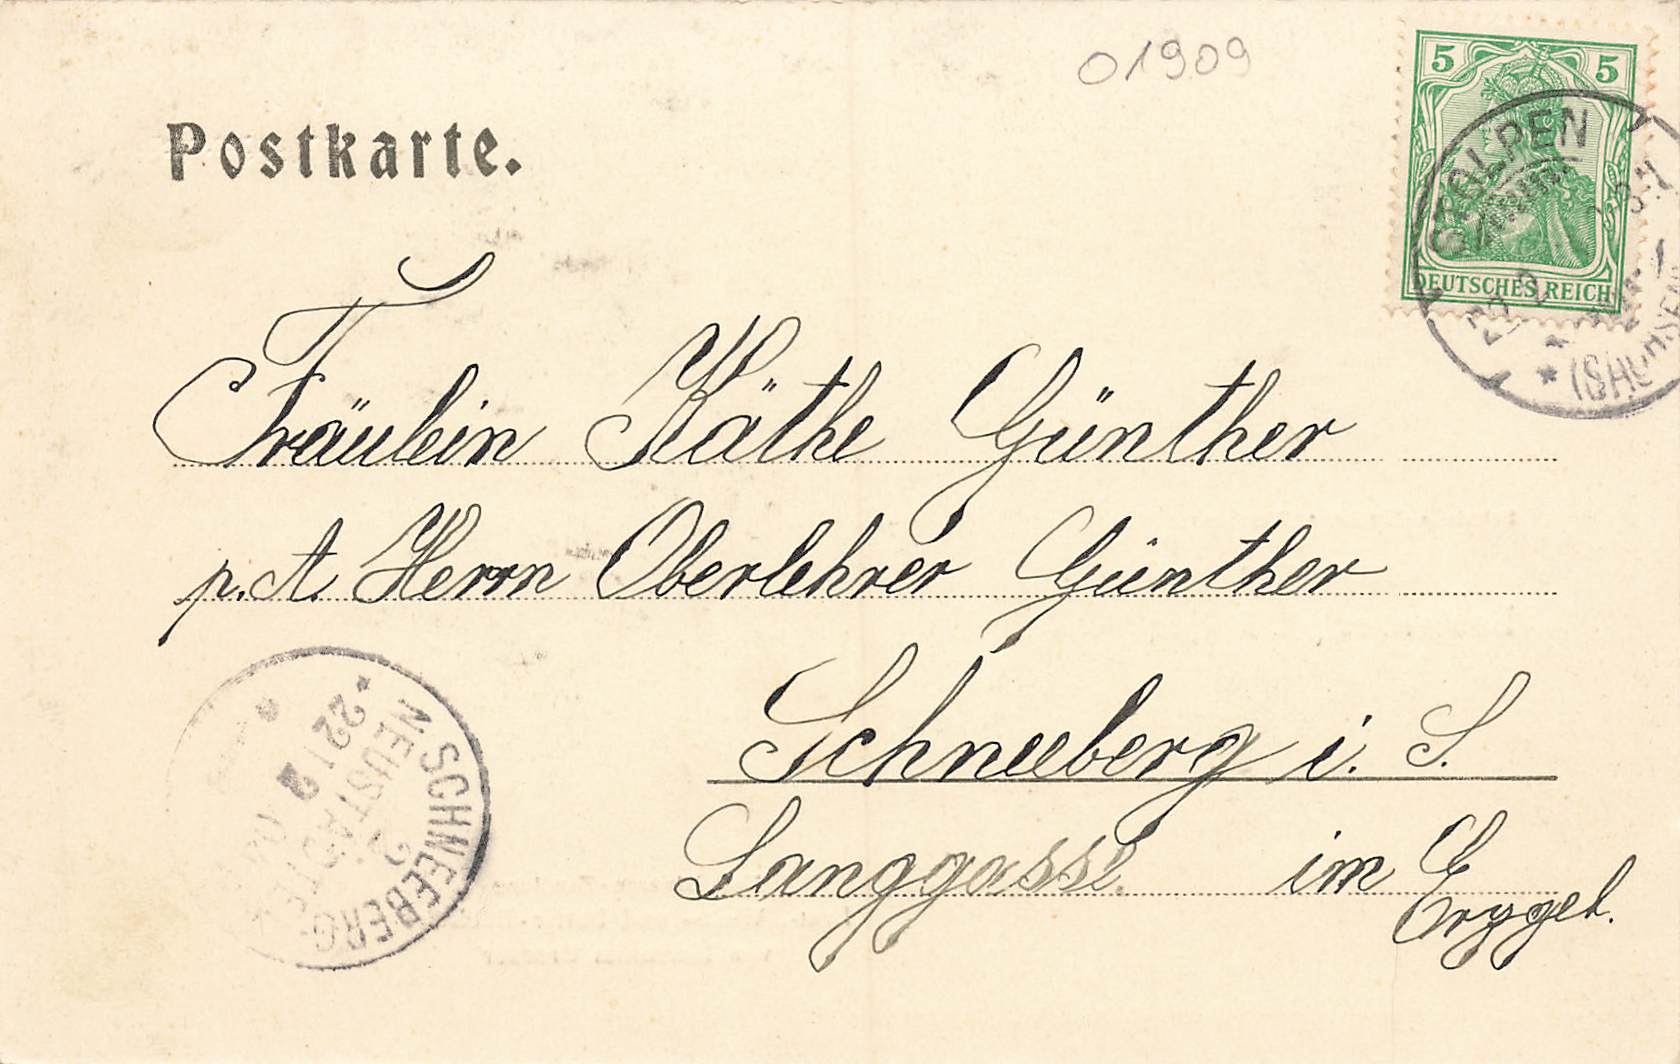 01909
5 5
Postkarte.
STOLPEN
DEUTSCHES REICH
(SACHSEN)
Fräulein Käthe Günther
p. A Herrn Oberlehrer Günther
Schneeberg i. S.
Langgasse. im Erzgeb.
SCHNEEBERG-
NEUSTÄDTEL
22 12
2